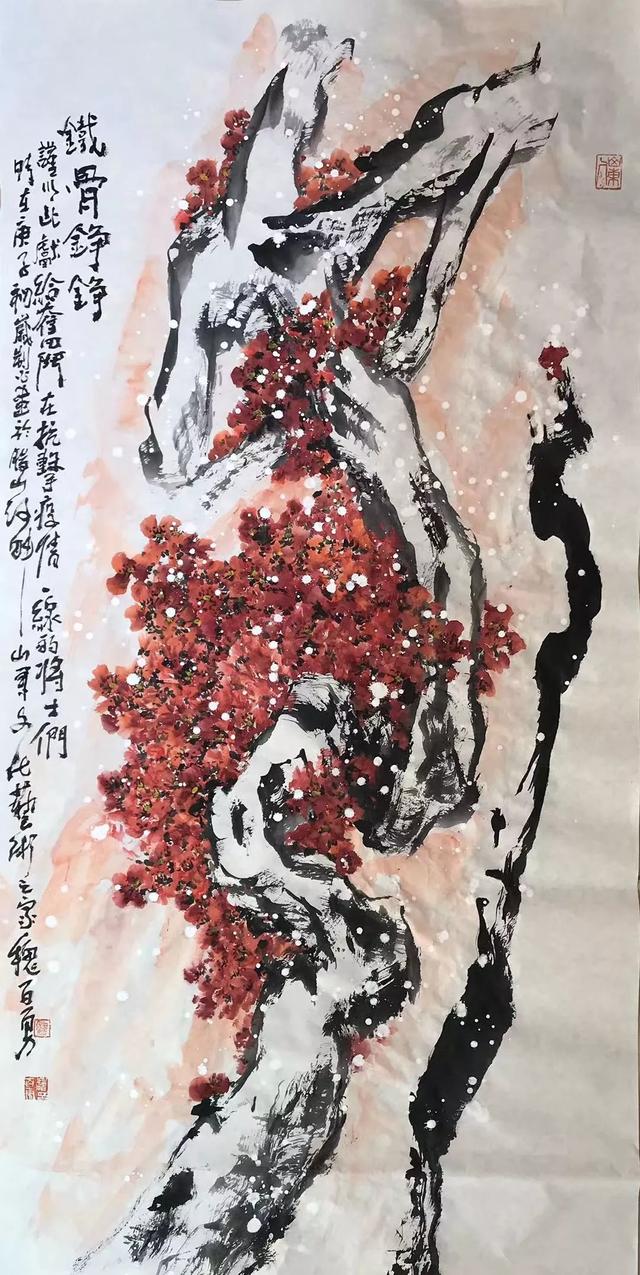 鐵骨錚錚
謹以此獻給奮鬥在抗擊疫情一線的將士們
時在庚子初歲制心畫於勝山
山東文化藝術之家魏百勇